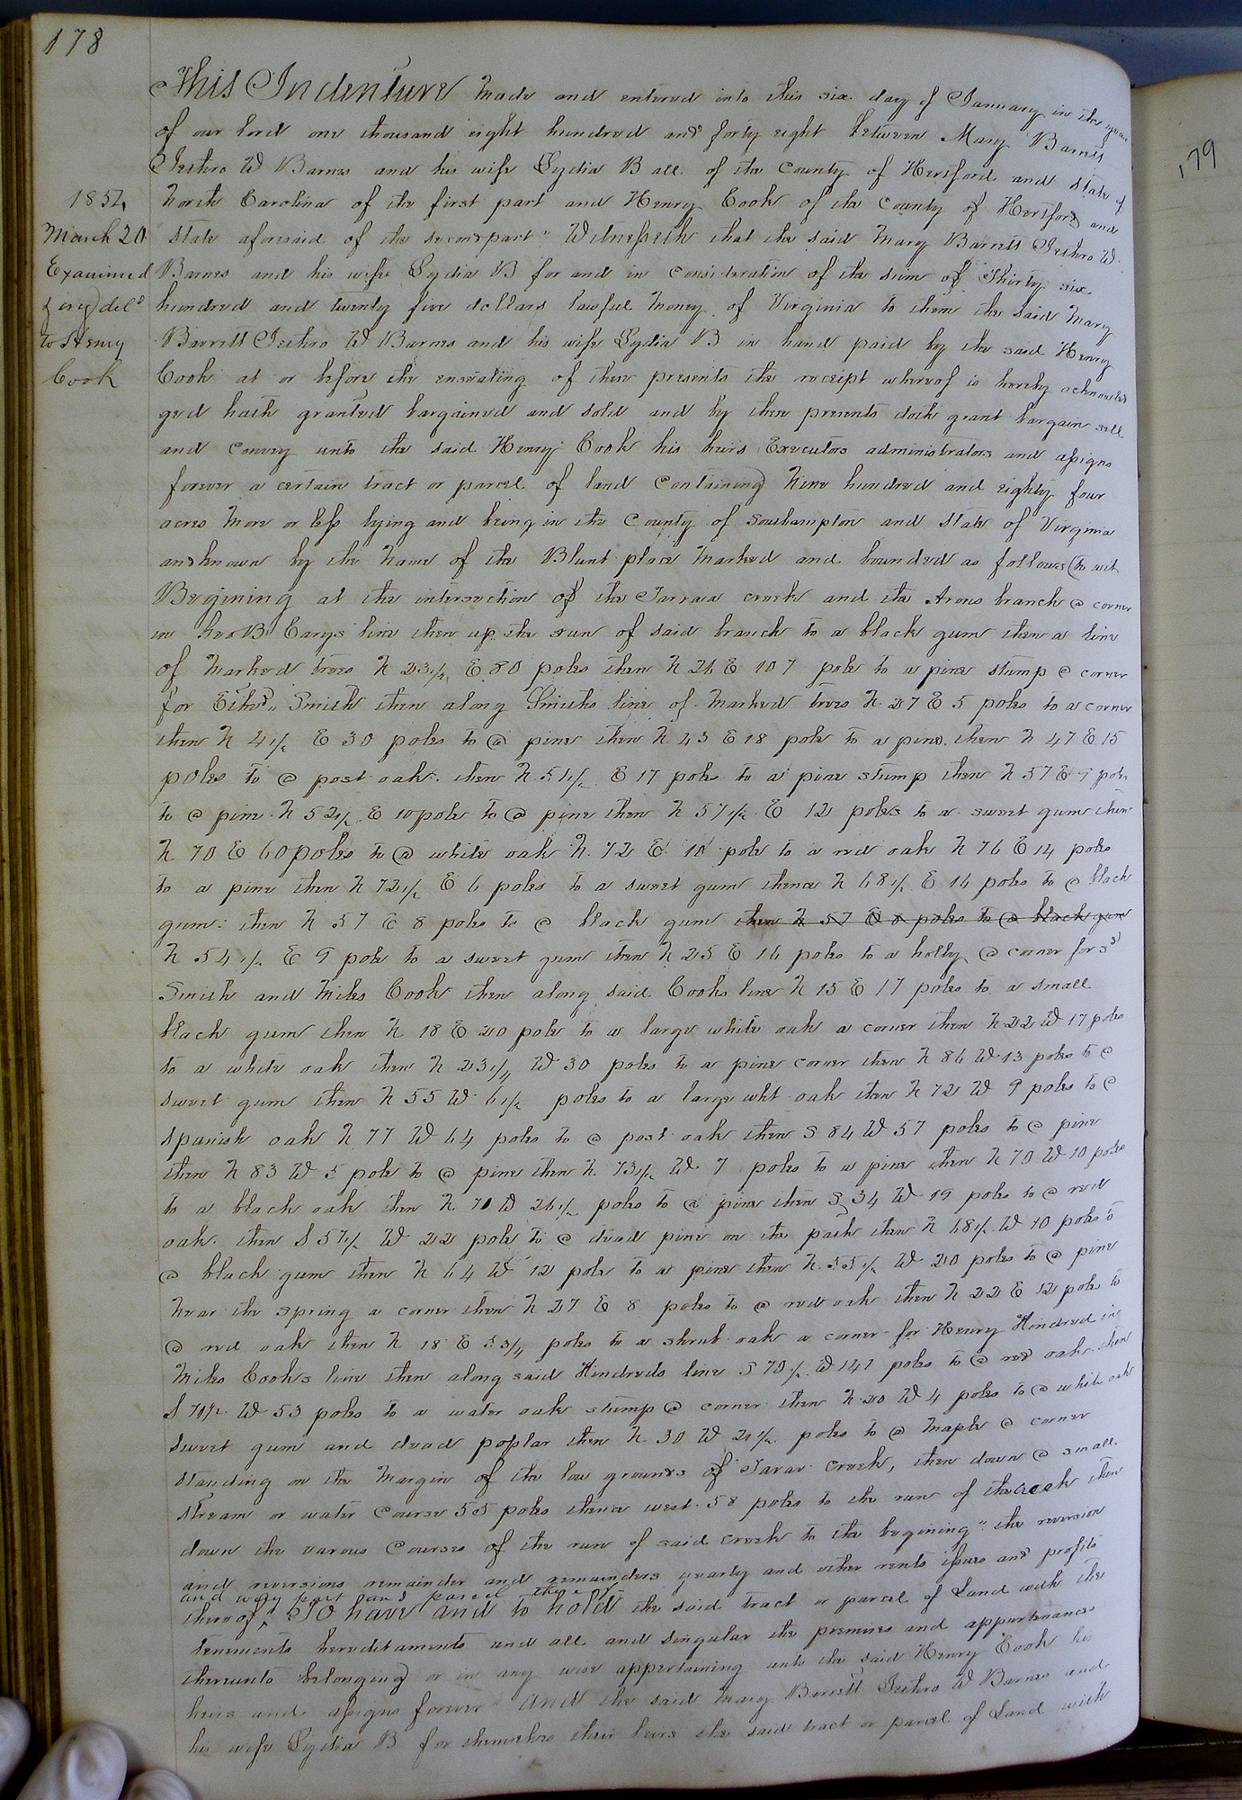 178
This Indenture Made and entered into this six day of January in the year
of our lord one thousand eight hundred and forty eight between Mary Barrett
Jethro W Barnes and his wife Lydia B all of the County of Hertford and State of
North Carolina of the first part and Henry Cook of the County of Hertford and
state aforesaid of the second part " Witnesseth that the said Mary Barrett Jethro W.
Barnes and his wife Lydia B for and in Consideration of the sum of Thirty six
hundred and twenty five dollars lawful Money of Virginia to them the said Mary
Barrett Jethro W Barnes and his wife Lydia B in hand paid by the said Henry
Cook at or before the ensealing of these presents the receipt whereof is hereby acknowled
ged hath granted bargained and sold and by these presents doth grant bargain sell
and Convey unto the said Henry Cook his heirs Executors administrators and assigns
forever a certain tract or parcel of land Containing Nine hundred and eighty four
acres More or less lying and being in the County of Southampton and State of Virginia
and known by the Name of the Blunt place Marked and bounded as follows (to wit
Begining at the intersection of the Tarrara creek and the Arons branch a corner
in B Carys line then up the run of said branch to a black gum then a line
of Marked trees N 23½ E 80 poles then N 26 E 107 poles to a pine stump a corner
for Smith then along Smiths line of Marked trees N 27 E 5 poles to a corner
then N 41½ E 30 poles to a pine then N 43 E 18 pole to a pine then N 47 E 15
poles to a post oak. then N 51½ E 17 poles to a pine stump then N 57 E 9 poles
to a pine N 52½ E 10 poles to a pine then N 57½ E 12 poles to a sweet gum then
N 70 E 60 poles to a white oak N. 72 E 10 pole to a red oak N 76 E 14 poles
to a pine then N 72½ E 6 poles to a sweet gum thence N 68½ E 16 poles to a black
gum: then N 57 E 8 poles to a black gum then N 57 E 8 poles to a black gum
N 54½ E 9 pole to a sweet gum then N 25 E 16 poles to a holly a corner for sd
Smith and Miles Cook then along said Cooks line N 15 E 17 poles to a small
black gum then N 18 E 20 pole to a large white oak a corner then N 22 W 17 poles
to a white oak then N 23¼ W 30 poles to a pine corner then N 86 W 13 poles to a
sweet gum then N 55 W 6½ poles to a large wht oak then N 72 W 9 poles to a
spanish oak N 77 W 64 poles to a post oak then S 84 W 57 poles to a pine
then N 83 W 5 pole to a pine then N. 73½ W 7 poles to a pine then N 70 W 10 poles
to a black oak then N 70 W 26½ poles to a pine then S 34 W 19 poles to a red
oak. then S 57½ W 22 pole to a dead pine on the path then N 68½ W 10 poles to
a black gum then N 64 W 12 pole to a pine then N. 55½ W 20 poles to a pine
Near the spring a corner then N 27 E 8 poles to a red oak then N 22 E 12 poles to
a red oak then N 18 E poles to a shrub oak a corner for Henry Hindred in
Miles Cooks line then along said Hindreds line S 70½ W 141 poles to a red oak then
S 70½ W 53 poles to a water oak stump a corner then N 20 W 4 poles to a white oak
sweet gum and dead poplar then N 30 W 21½ poles to a Maple a corner
standing on the Margin of the low grounds of Tarar creek, then down a small
stream or water Course 55 poles thence west 58 poles to the run of the creek then
down the various Courses of the run of said creek to the begining " the reversion
and reversions remainder and remainders yearly and other rents issues and profits
and every part and parcel thereof
thereof ^ To have and to hold the said tract or parcel of Land with the
tenements hereditaments and all and singular the premises and appurtenances
thereunto belonging or in any wise appertaining unto the said Henry Cook his
heirs and assigns forever And the said Mary Barrett Jethro W Barnes and
his wife Lydia B for themselves their heirs the said tract or parcel of Land with
1851,
March 20
Examined
& deld
to Henry
Cook
179